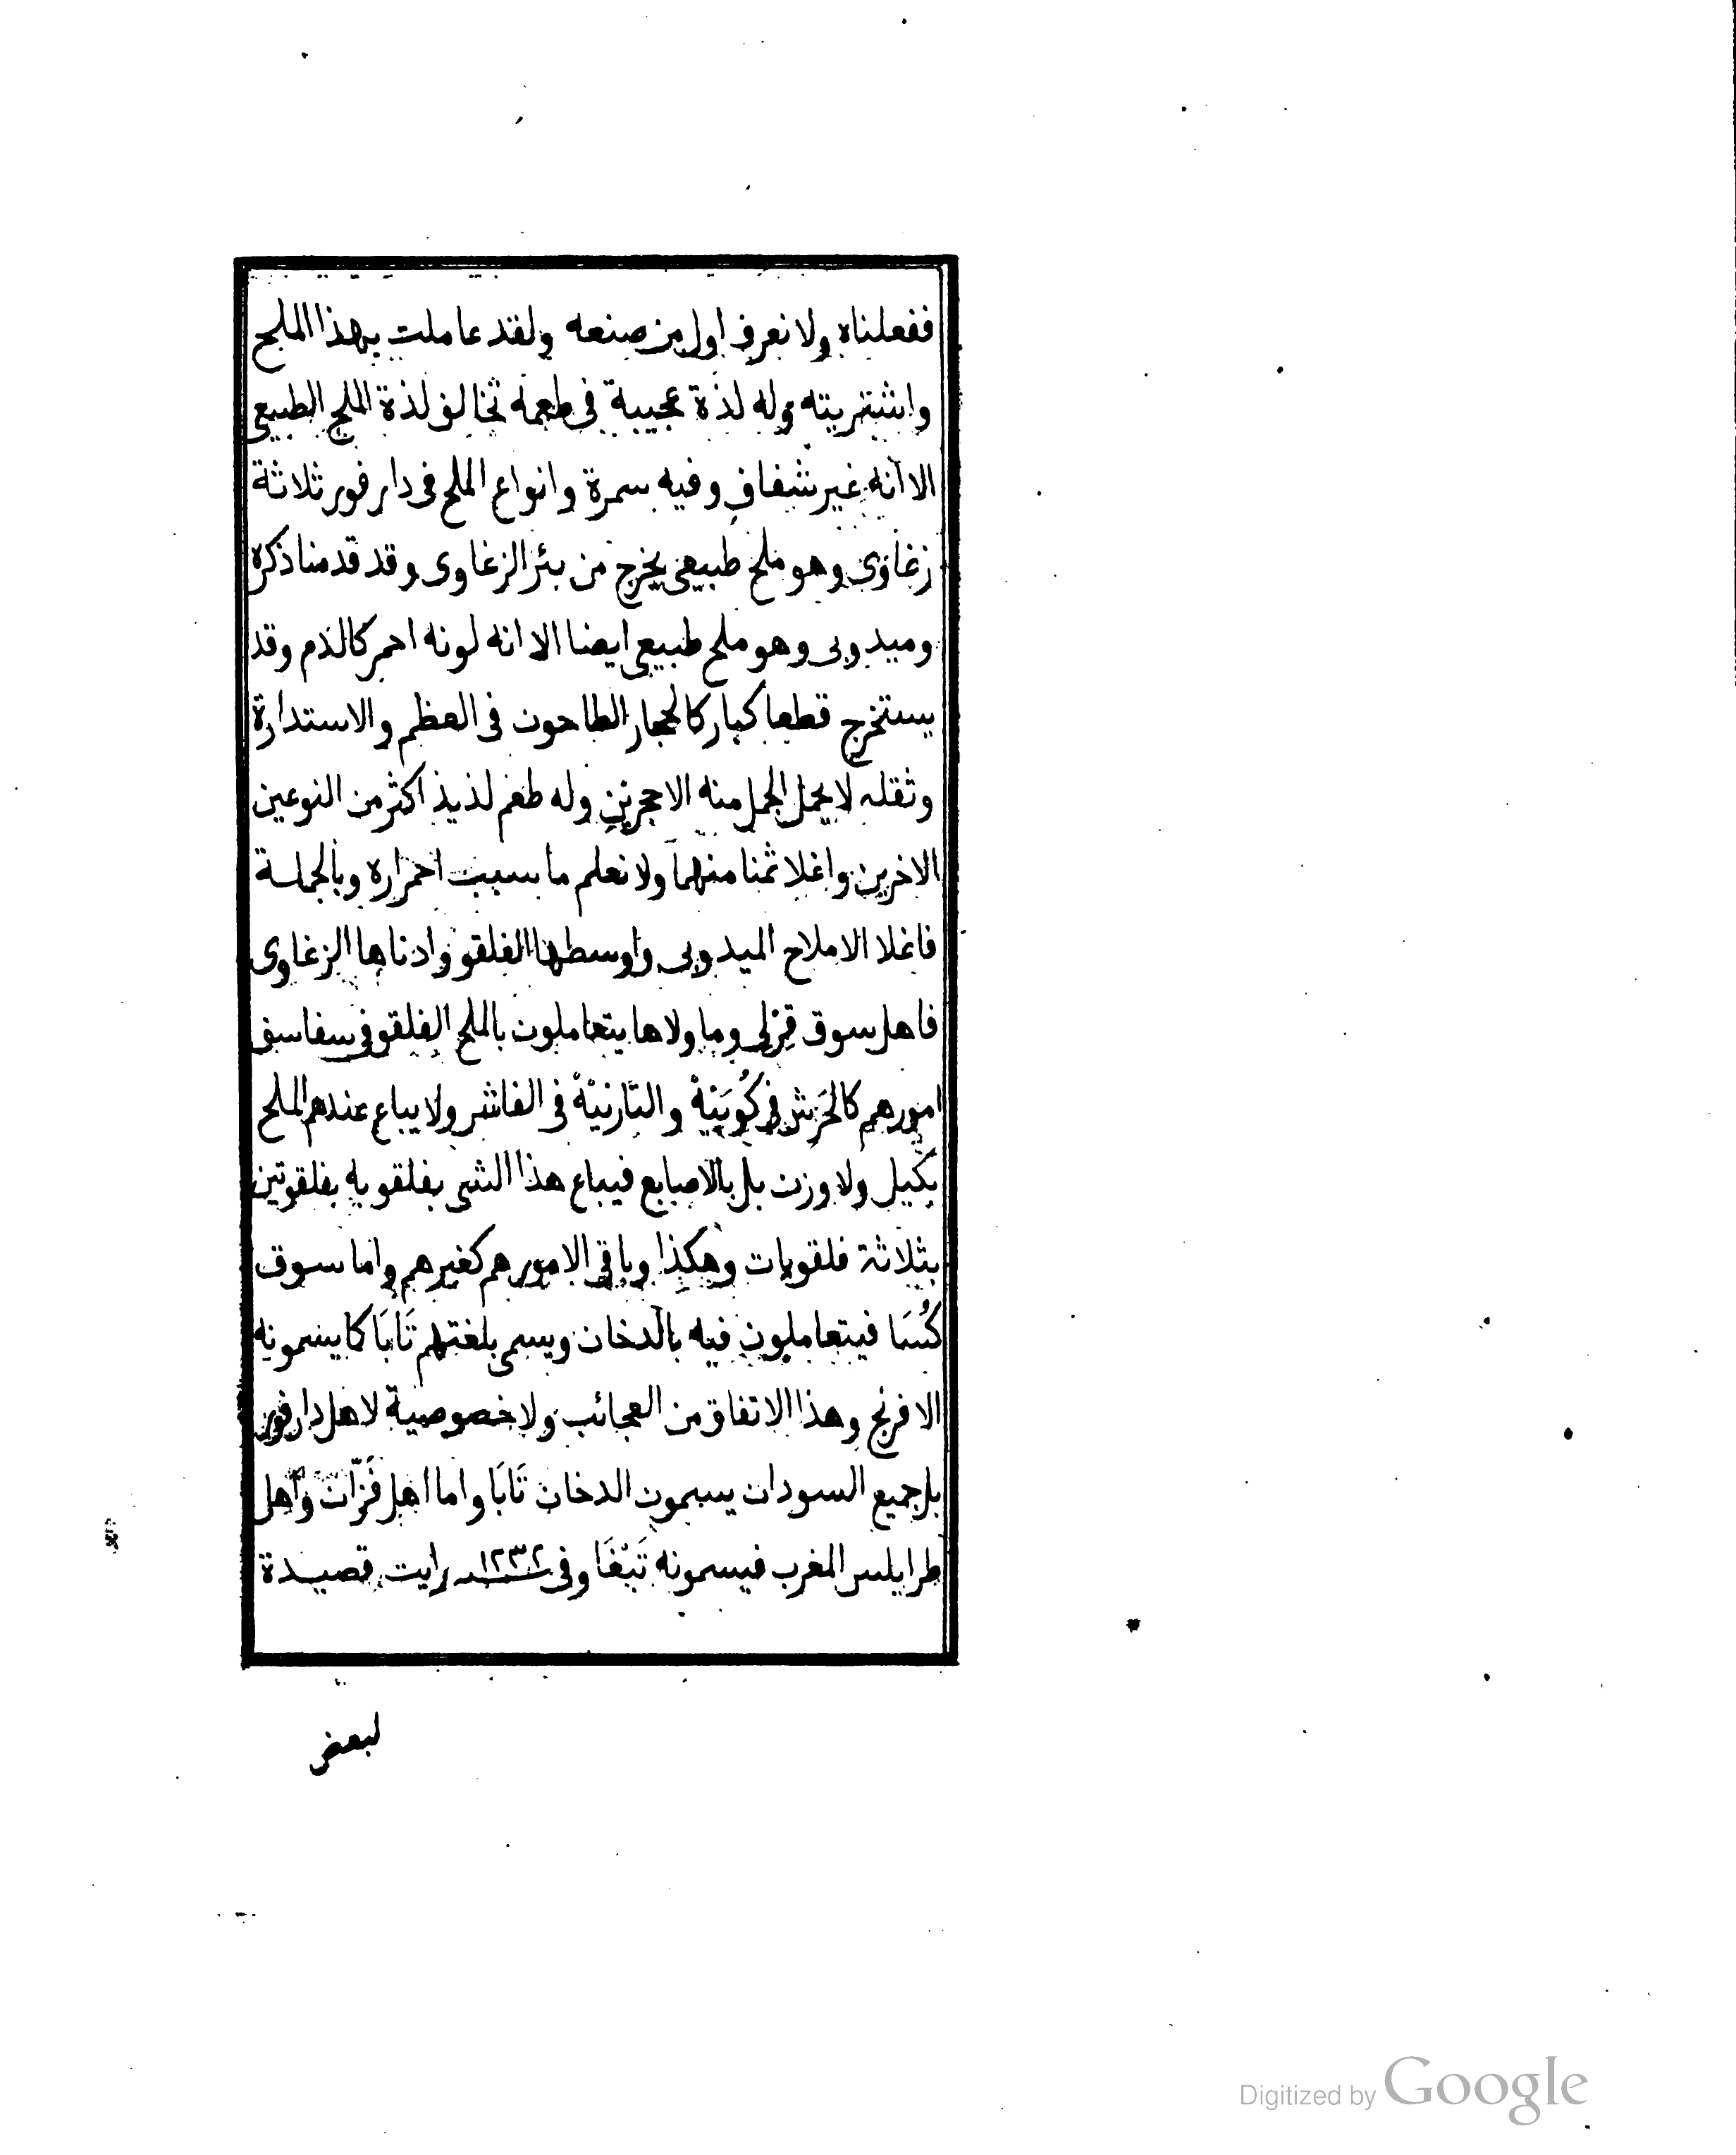 ففعلناه ولا نعرف اول من صنعه ولقد عاملت بهذا الملح
واشتريته وله لذة عجيبة فى طعمه تخالف لذة الملح الطبيعى
الا انه غير شفاف وفيه سمرة وانواع الملح فى دار فور ثلاثة
زغاوى وهو ملح طبيعى يخرج من بئر الزغاوى وقد قدمنا ذكره
وميدوبى وهو ملح طبيعى ايضا الا انه لونه احمر كالدم وقد
يستخرج قطعا كبار كالحجار الطاحون فى العظم والاستدارة
وثقله لا يحمل الجمل منه الا حجرين وله طعم لذيذ اكثر من النوعين
الاخرين واغلا ثمنا منهما ولا نعلم ما سبب احمراره وبالجملة
فاغلا الاملاح الميدوبى واوسطها الفلقو وادناها الزغاوى
فاهل سوق قِرْلِى وما ولاها يتعاملون بالملح الفلقو فى سفاسف
امورهم كالحَرَش فى كُوبَيْهْ والتّارنيْهْ فى الفاشر ولا يباع عندهم الملح
بكيل ولا وزن بل بالاصابع فيباع هذا الشى بفلقويه بفلقوتين
بثلاثة فلقويات وهكذا وباقى الامور هم كغيرهم واما سوق
كُسَا فيتعاملون فيه بالدخان ويسمى بلغتهم تَابَا كما يسمونه
الافرنج وهذا الاتفاق من العجائب ولا خصوصية لاهل دار فور
بل جميع السودان يسمون الدخان تَابَا واما اهل فَزّان واهل
طرابلس المغرب فيسمونه تَبْغَا وفى سنة ١٢٣٢ رايت قصيدة
لبعض
Digitized by Google